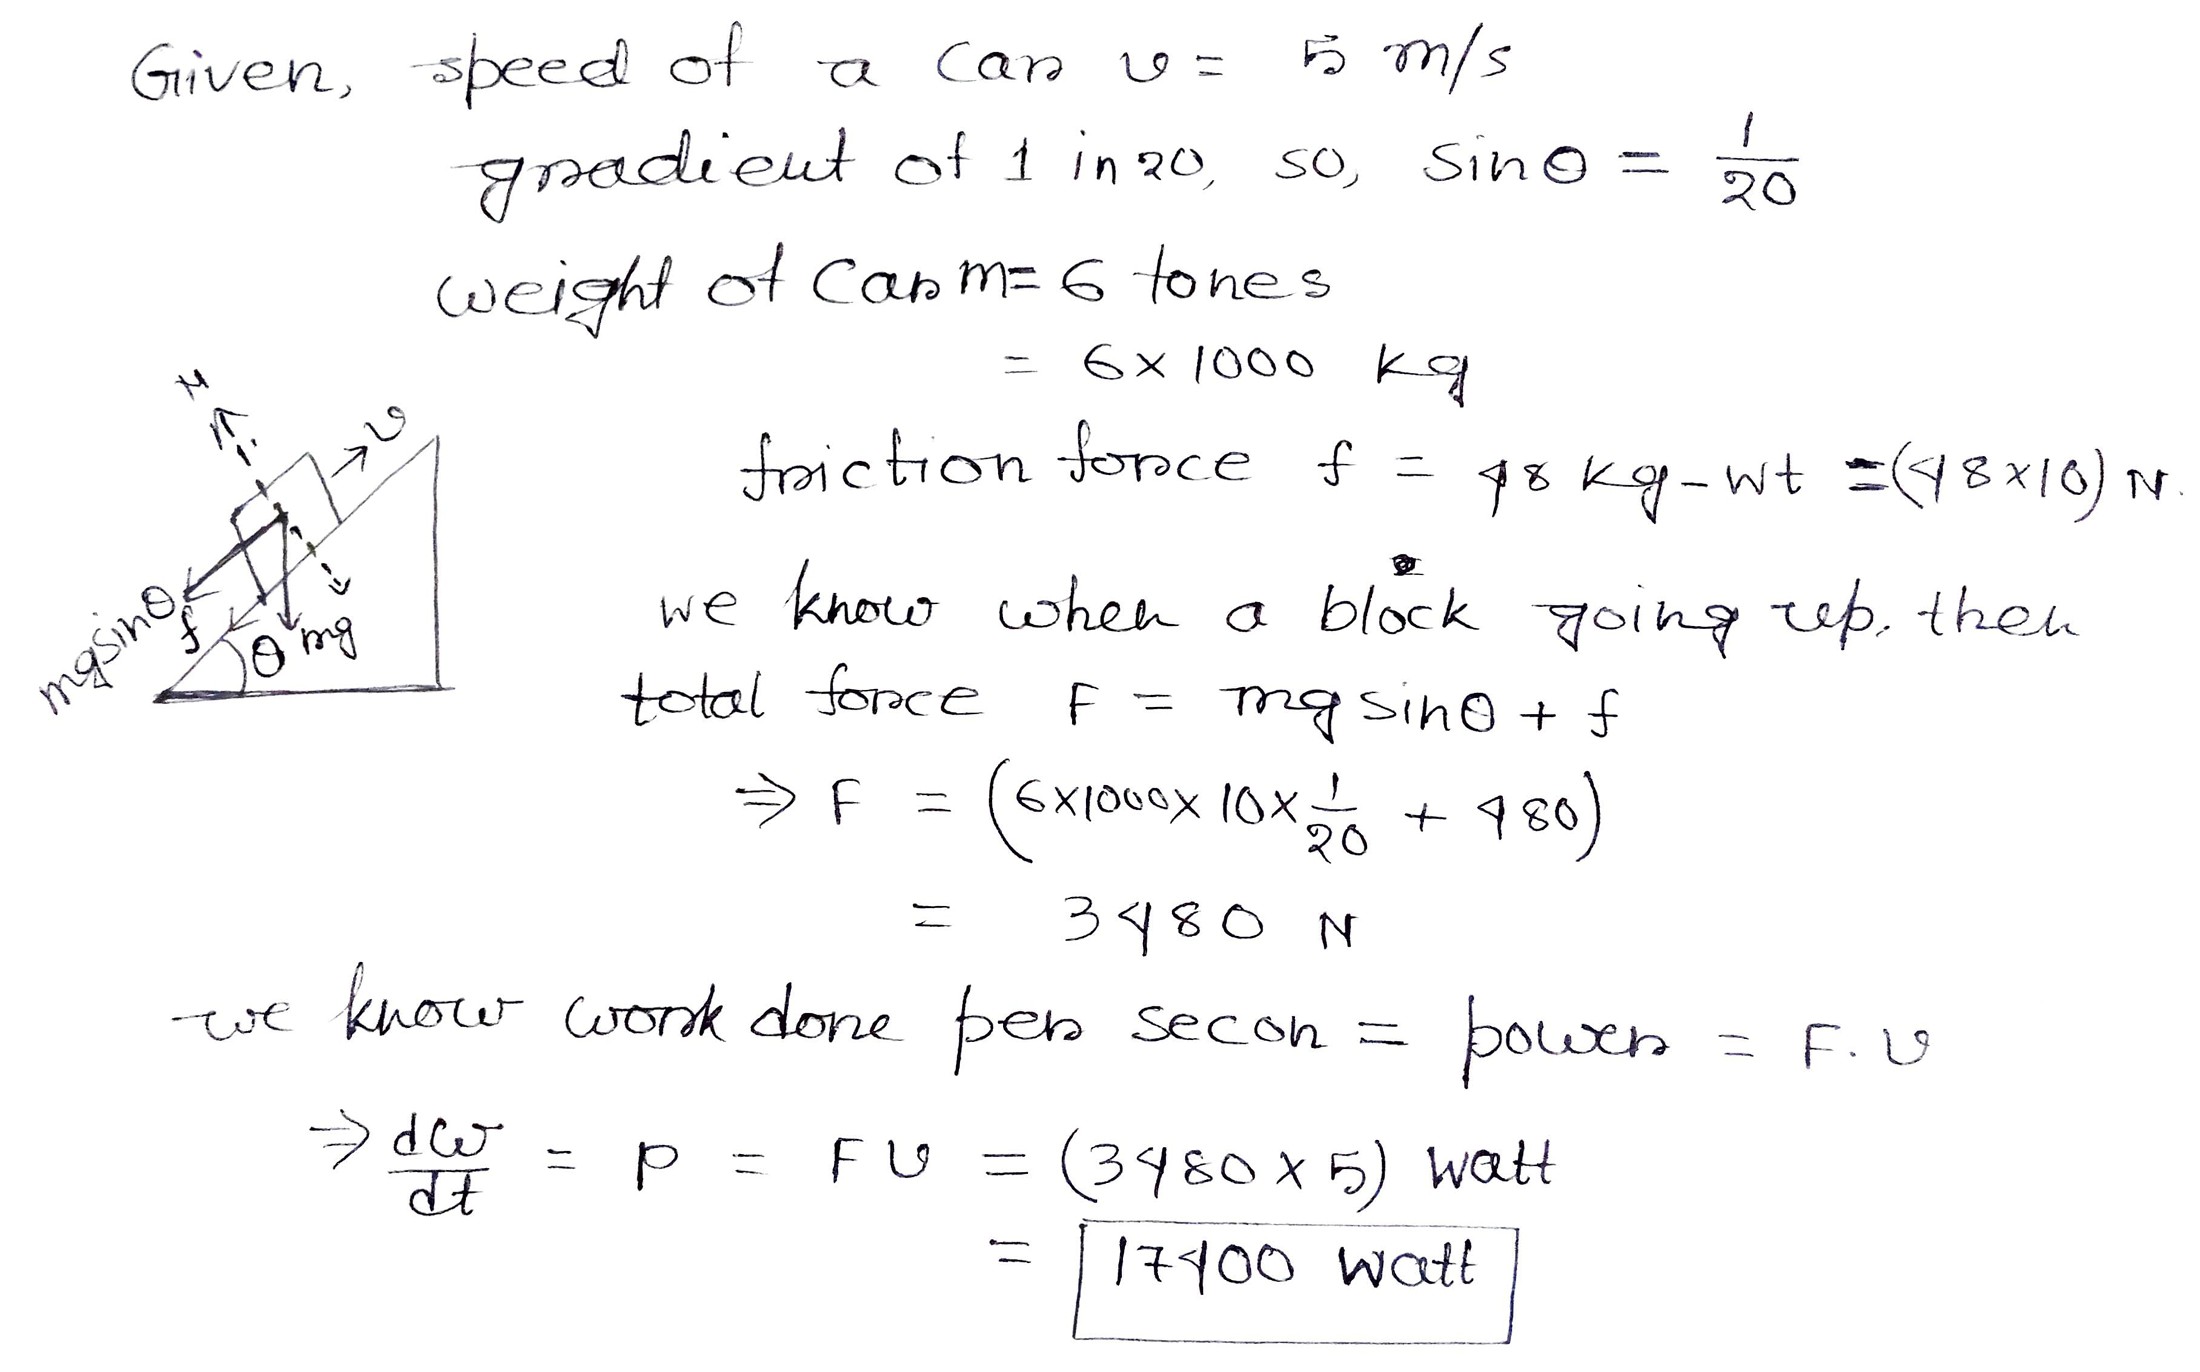 Given, speed of a car v = 5 m/s
gradient of 1 in 20, so, sinθ = 1/20
weight of car m = 6 tones
= 6 x 1000 kg
friction force f = 48 kg-wt = (48x10) N.
we know when a block going up, then
total force F = mg sinθ + f
⇒ F = (6x1000x 10x 1/20 + 480)
= 3480 N
N
v
mg sinθ
f
θ
mg
we know work done per secon = power = F. v
⇒ dw/dt = P = F v = (3480 x 5) watt
= 17400 watt